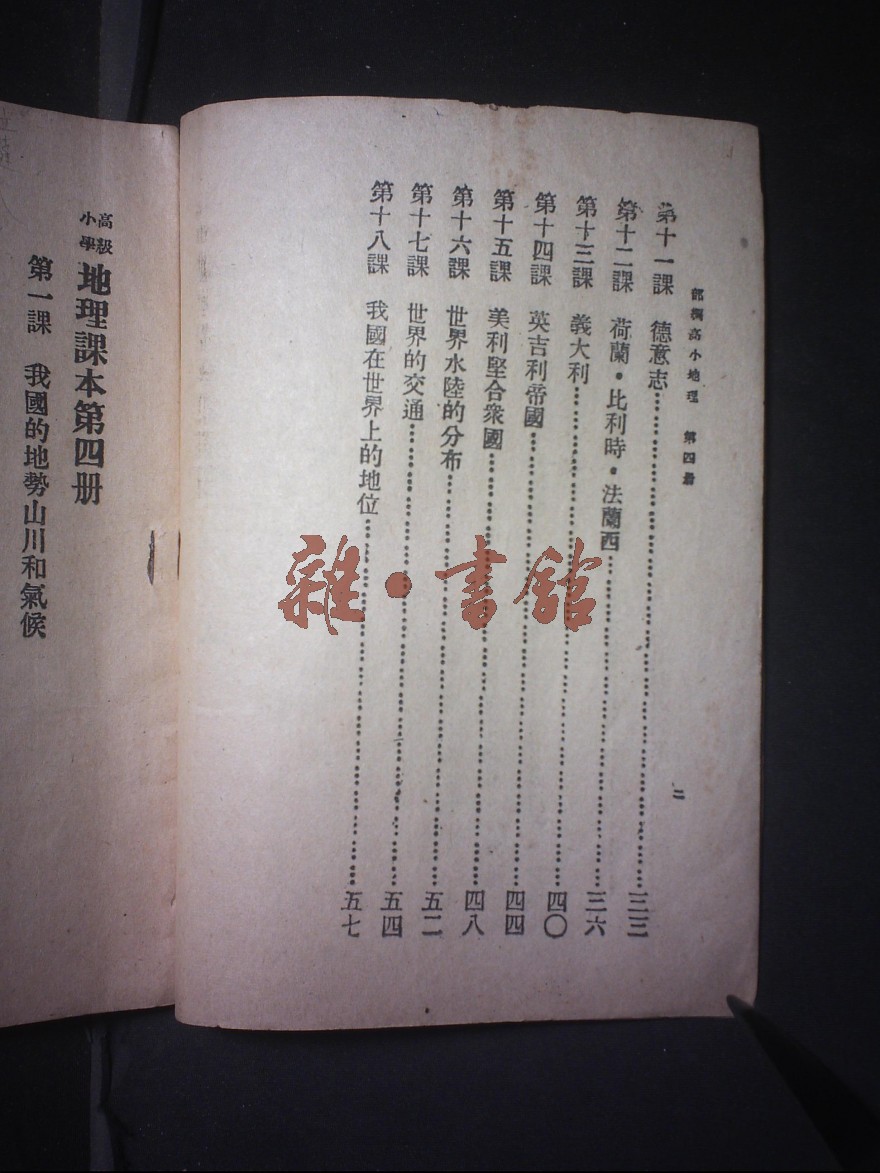 部編高小地理 第四册
二
第十一課 德意志……三三
第十二課 荷蘭・比利時・法蘭西……三六
第十三課 義大利……四〇
第十四課 英吉利帝國……四四
第十五課 美利堅合衆國……四八
第十六課 世界水陸的分布……五二
第十七課 世界的交通……五四
第十八課 我國在世界上的地位……五七
高級小學 地理課本第四册
第一課 我國的地勢山川和氣候
雜・書館